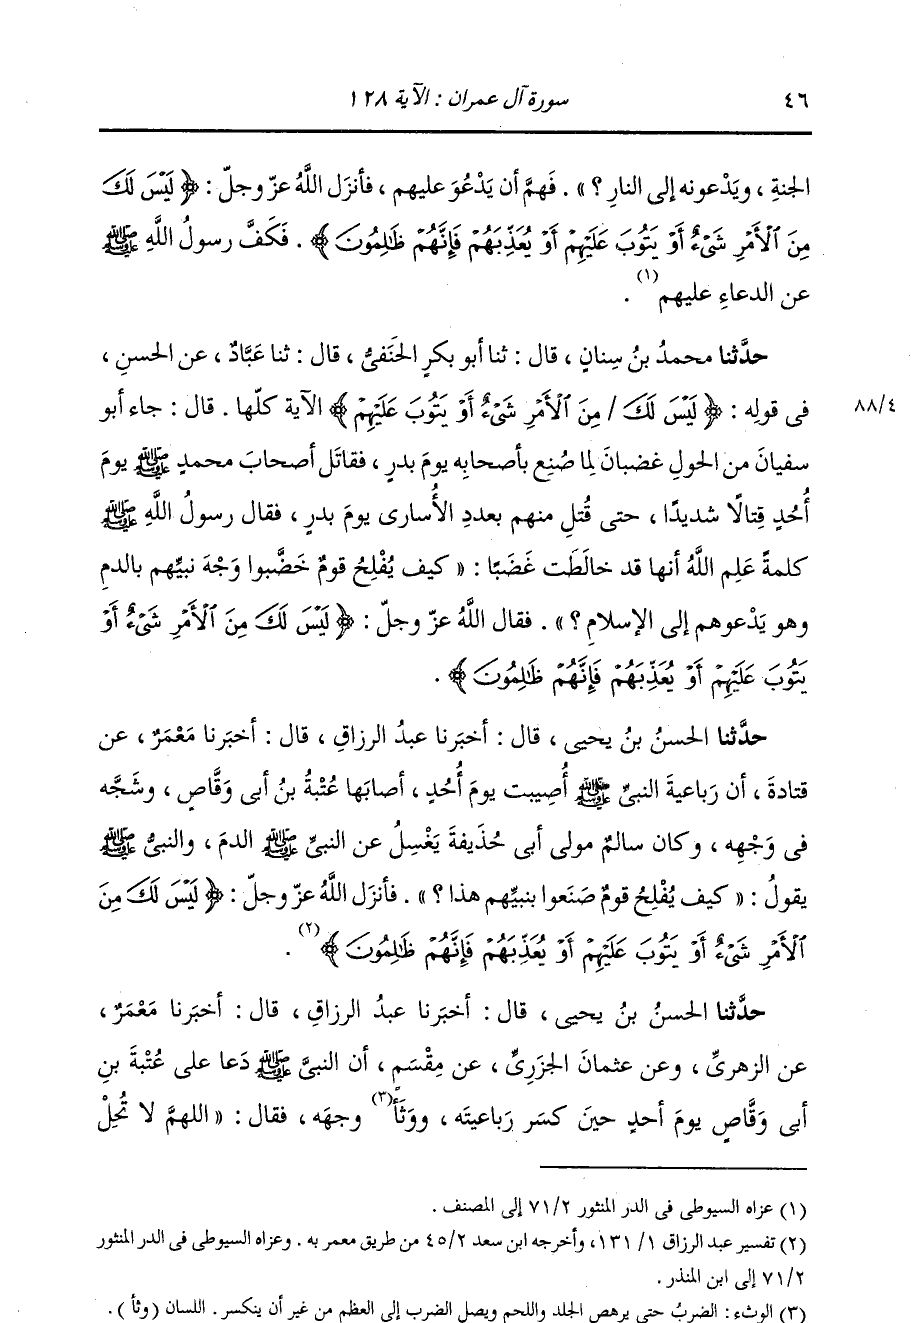 ٤٦ سورة آل عمران : الآية ١٢٨
الجنةِ ، ويَدْعونه إلى النارِ ؟ » . فَهمَّ أن يَدْعُوَ عليهم ، فأنزَل اللَّهُ عزّ وجلّ : ﴿ لَيْسَ لَكَ
مِنَ ٱلْأَمْرِ شَىْءٌ أَوْ يَتُوبَ عَلَيْهِمْ أَوْ يُعَذِّبَهُمْ فَإِنَّهُمْ ظَٰلِمُونَ ﴾ . فَكَفَّ رسولُ اللَّهِ ﷺ
عن الدعاءِ عليهم(١) .
حدَّثنا محمدُ بنُ سِنانٍ ، قال : ثنا أبو بكرٍ الحَنَفىُّ ، قال : ثنا عَبَّادٌ ، عن الحسنِ ،
فى قولِه : ﴿ لَيْسَ لَكَ / مِنَ ٱلْأَمْرِ شَىْءٌ أَوْ يَتُوبَ عَلَيْهِمْ ﴾ الآية كلّها . قال : جاء أبو ٨٨/٤
سفيانَ من الحولِ غضبانَ لِما صُنِع بأصحابِه يومَ بدرٍ ، فقاتَل أصحابَ محمدٍ ﷺ يومَ
أُحُدٍ قِتالًا شديدًا ، حتى قُتِل منهم بعددِ الأُسارى يومَ بدرٍ ، فقال رسولُ اللَّهِ ﷺ
كلمةً عَلِم اللَّهُ أنها قد خالَطَت غَضَبًا : « كيف يُفْلِحُ قومٌ خَضَّبوا وَجْهَ نبيِّهم بالدمِ
وهو يَدْعوهم إلى الإسلامِ ؟ » . فقال اللَّهُ عزّ وجلّ : ﴿ لَيْسَ لَكَ مِنَ ٱلْأَمْرِ شَىْءٌ أَوْ
يَتُوبَ عَلَيْهِمْ أَوْ يُعَذِّبَهُمْ فَإِنَّهُمْ ظَٰلِمُونَ ﴾ .
حدَّثنا الحسنُ بنُ يحيى ، قال : أخبَرنا عبدُ الرزاقِ ، قال : أخبَرنا مَعْمَرٌ ، عن
قتادةَ ، أن رَباعيةَ النبىِّ ﷺ أُصِيبت يومَ أُحُدٍ ، أصابَها عُتْبةُ بنُ أبى وَقَّاصٍ ، وشَجَّه
فى وَجْهِه ، وكان سالمٌ مولى أبى حُذَيفةَ يَغْسِلُ عن النبىِّ ﷺ الدمَ ، والنبىُّ ﷺ
يقولُ : « كيف يُفْلِحُ قومٌ صَنَعوا بنبيِّهم هذا ؟ » . فأنزَل اللَّهُ عزّ وجلّ : ﴿ لَيْسَ لَكَ مِنَ
ٱلْأَمْرِ شَىْءٌ أَوْ يَتُوبَ عَلَيْهِمْ أَوْ يُعَذِّبَهُمْ فَإِنَّهُمْ ظَٰلِمُونَ ﴾(٢) .
حدَّثنا الحسنُ بنُ يحيى ، قال : أخبَرنا عبدُ الرزاقِ ، قال : أخبَرنا مَعْمَرٌ ،
عن الزهرىِّ ، وعن عثمانَ الجَزَرِىِّ ، عن مِقْسَمٍ ، أن النبىَّ ﷺ دَعا على عُتْبةَ بنِ
أبى وَقَّاصٍ يومَ أحدٍ حينَ كسَر رَباعيتَه ، ووَثَأَ(٣) وجهَه ، فقال : « اللهمَّ لا تُحِلْ
(١) عزاه السيوطى فى الدر المنثور ٧١/٢ إلى المصنف .
(٢) تفسير عبد الرزاق ١/ ١٣١، وأخرجه ابن سعد ٤٥/٢ من طريق معمر به . وعزاه السيوطى فى الدر المنثور
٧١/٢ إلى ابن المنذر .
(٣) الوثء : الضربُ حتى يرهص الجلد واللحم ويصل الضرب إلى العظم من غير أن ينكسر . اللسان (وثأ ) .